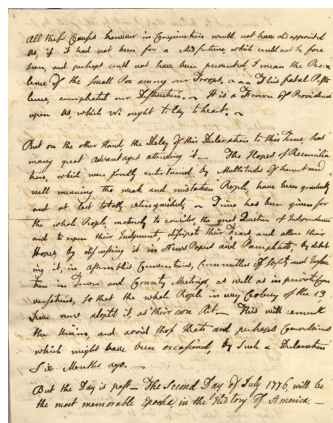 All these Causes however in Conjunction would not have disappointed
Us, if it had not been for a Misfortune, which could not be fore
seen, and perhaps could not have been prevented, I mean the Preva
lence of the Small Pox among our Troops. — This fatal Pesti
lence, compleated our Destruction. — It is a Frown of Providence
upon Us, which We ought to lay to heart. —
But on the other Hand, the Delay of this Declaration to this Time, has
many great Advantages attending it. — The Hopes of Reconcilia
tion, which were fondly entertained by Multitudes of honest and
well meaning tho weak and mistaken People, have been gradually
and at last totally extinguished. — Time has been given for
the whole People, maturely to consider the great Question of Independence
and to ripen their Judgments, dissipate their Fears, and allure their
Hopes, by discussing it in News Papers and Pamphletts, by debat
ing it, in Assemblies, Conventions, Committees of Safety and Inspec
tion, in Town and County Meetings, as well as in private Con
versations, so that the whole People in every Colony of the 13
have now adopted it, as their own Act. — This will cement
the Union, and avoid those Heats and perhaps Convulsions
which might have been occasioned, by such a Declaration
Six Months ago. —
But the Day is past. The Second Day of July 1776, will be
the most memorable Epocha, in the History of America. —